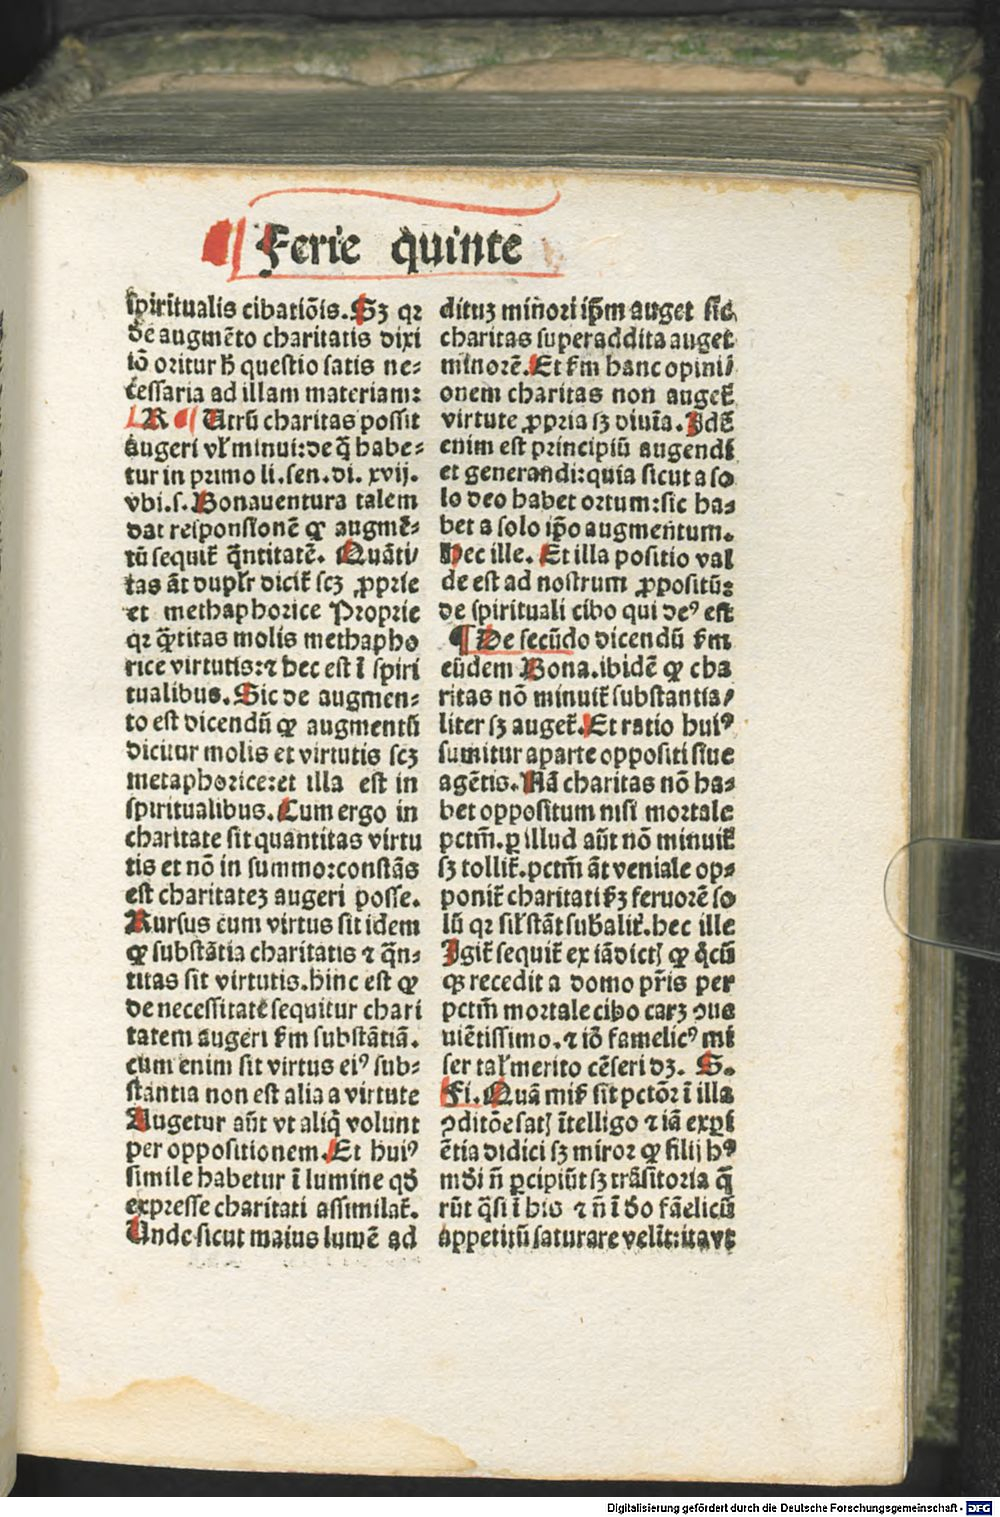 Ferie quinte
spiritualis cibatiōis. Sꝫ qꝛ
de augmēto charitatis dixi
iō oritur h̄ questio satis ne⸗
cessaria ad illam materiam:
R ¶ Utrū charitas possit
augeri vl̓ minui: de q̄ habe⸗
tur in primo li. sen. di. xvij.
vbi. s. Bonauentura talem
dat responsionē ꝙ augmē⸗
tū sequit̄ q̄ntitatē. Quāti/
tas āt dupl̓r dicit̄ scꝫ ꝓprie
et methaphorice Proprie
qꝛ q̄titas molis methapho
rice virtutis: ⁊ hec est ī spiri
tualibus. Sic de augmen⸗
to est dicendū ꝙ augmentū
dicitur molis et virtutis scꝫ
metaphorice: et illa est in
spiritualibus. Cum ergo in
charitate sit quantitas virtu
tis et nō in summo: constās
est charitateꝫ augeri posse.
Rursus cum virtus sit idem
ꝙ substātia charitatis ⁊ q̄n⸗
titas sit virtutis. hinc est ꝙ
de necessitate sequitur chari
tatem augeri ẜm substātiā.
cum enim sit virtus eiꝰ sub⸗
stantia non est alia a virtute
Augetur aūt vt aliq̄ volunt
per oppositionem. Et huiꝰ
simile habetur ī lumine qd̄
expresse charitati assimilat̄.
Unde sicut maius lumē ad
dituꝫ minori ip̄m auget sic
charitas superaddita auget
minorē. Et ẜm hanc opini/
onem charitas non auget̄
virtute ꝓpria sꝫ diuīa. Idē
enim est principiū augendi
et generandi: quia sicut a so
lo deo habet ortum: sic ha⸗
bet a solo ip̄o augmentum.
Hec ille. Et illa positio val
de est ad nostrum ꝓpositū:
de spirituali cibo qui deꝰ est
¶ De secūdo dicendū ẜm
eūdem Bona. ibidē ꝙ cha
ritas nō minuit̄ substantia/
liter sꝫ auget̄. Et ratio huiꝰ
sumitur a parte oppositi siue
agētis. Nā charitas nō ha⸗
bet oppositum nisi mortale
pctm̄. ꝑ illud aūt nō minuit̄
sꝫ tollit̄. pctm̄ āt veniale op⸗
ponit̄ charitati ẜꝫ feruorē so
lū qꝛ sil̓ stāt subalit̓. hec ille
Igit̄ sequit̄ ex iādictꝭ ꝙ q̄cū
qꝫ recedit a domo pr̄is per
pctm̄ mortale cibo carꝫ ꝯue
niētissimo. ⁊ iō famelicꝰ mi
ser tal̓ merito cēseri dꝫ. S.
Fi. Quā mis̓ sit pctōꝛ ī illa
ꝯditōe satꝭ ītelligo ⁊ iā exꝑi
ētia didici sꝫ miror ꝙ filij hꝰ
mūdi n̄ ꝑcipiūt sꝫ trāsitoria q̄
rūt q̄si ī his ⁊ n̄ ī deo fāelicū
appetitū saturare velīt: ita vt
Digitalisierung gefördert durch die Deutsche Forschungsgemeinschaft - DFG